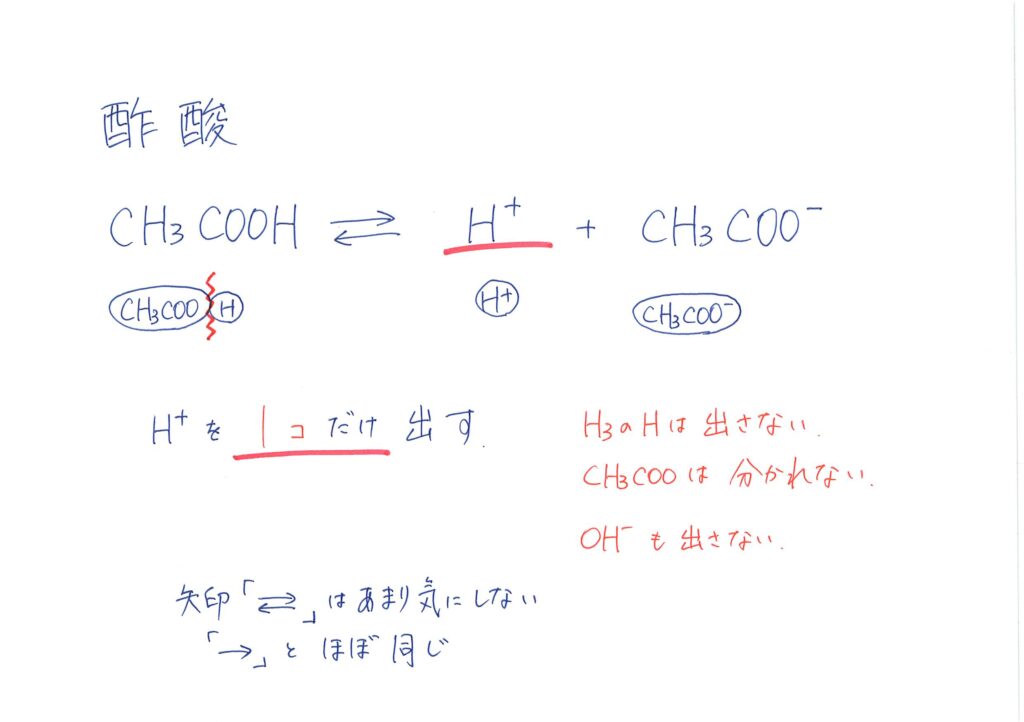 酢酸
CH3COOH ⇄ H+ + CH3COO−
CH3COO H
H+
CH3COO−
H+を1コだけ出す.
H3のHは出さない.
CH3COOは分かれない.
OH−も出さない.
矢印「⇄」はあまり気にしない
「→」とほぼ同じ